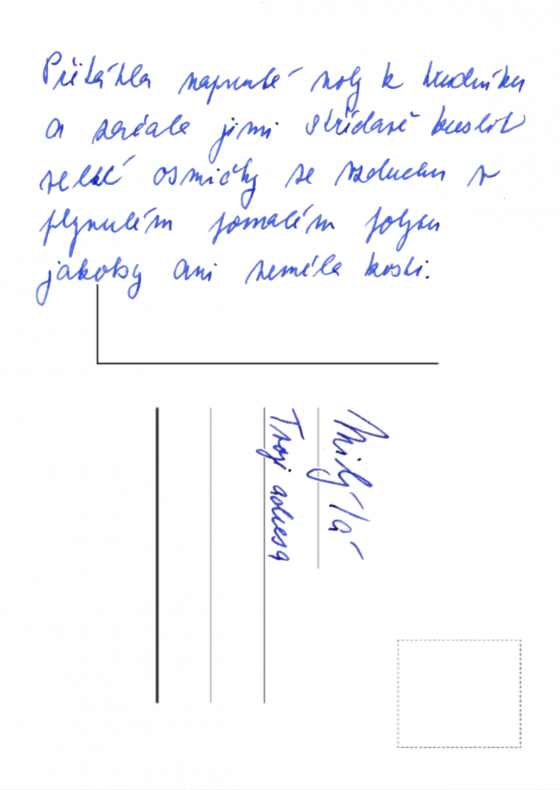 Přitáhla napnuté nohy k hrudníku
a začala jimi střídavě kreslit
velké osmičky ve vzduchu v
plynulém pomalém pohybu
jakoby ani neměla kosti.
Milý/á
Tvoji adresa